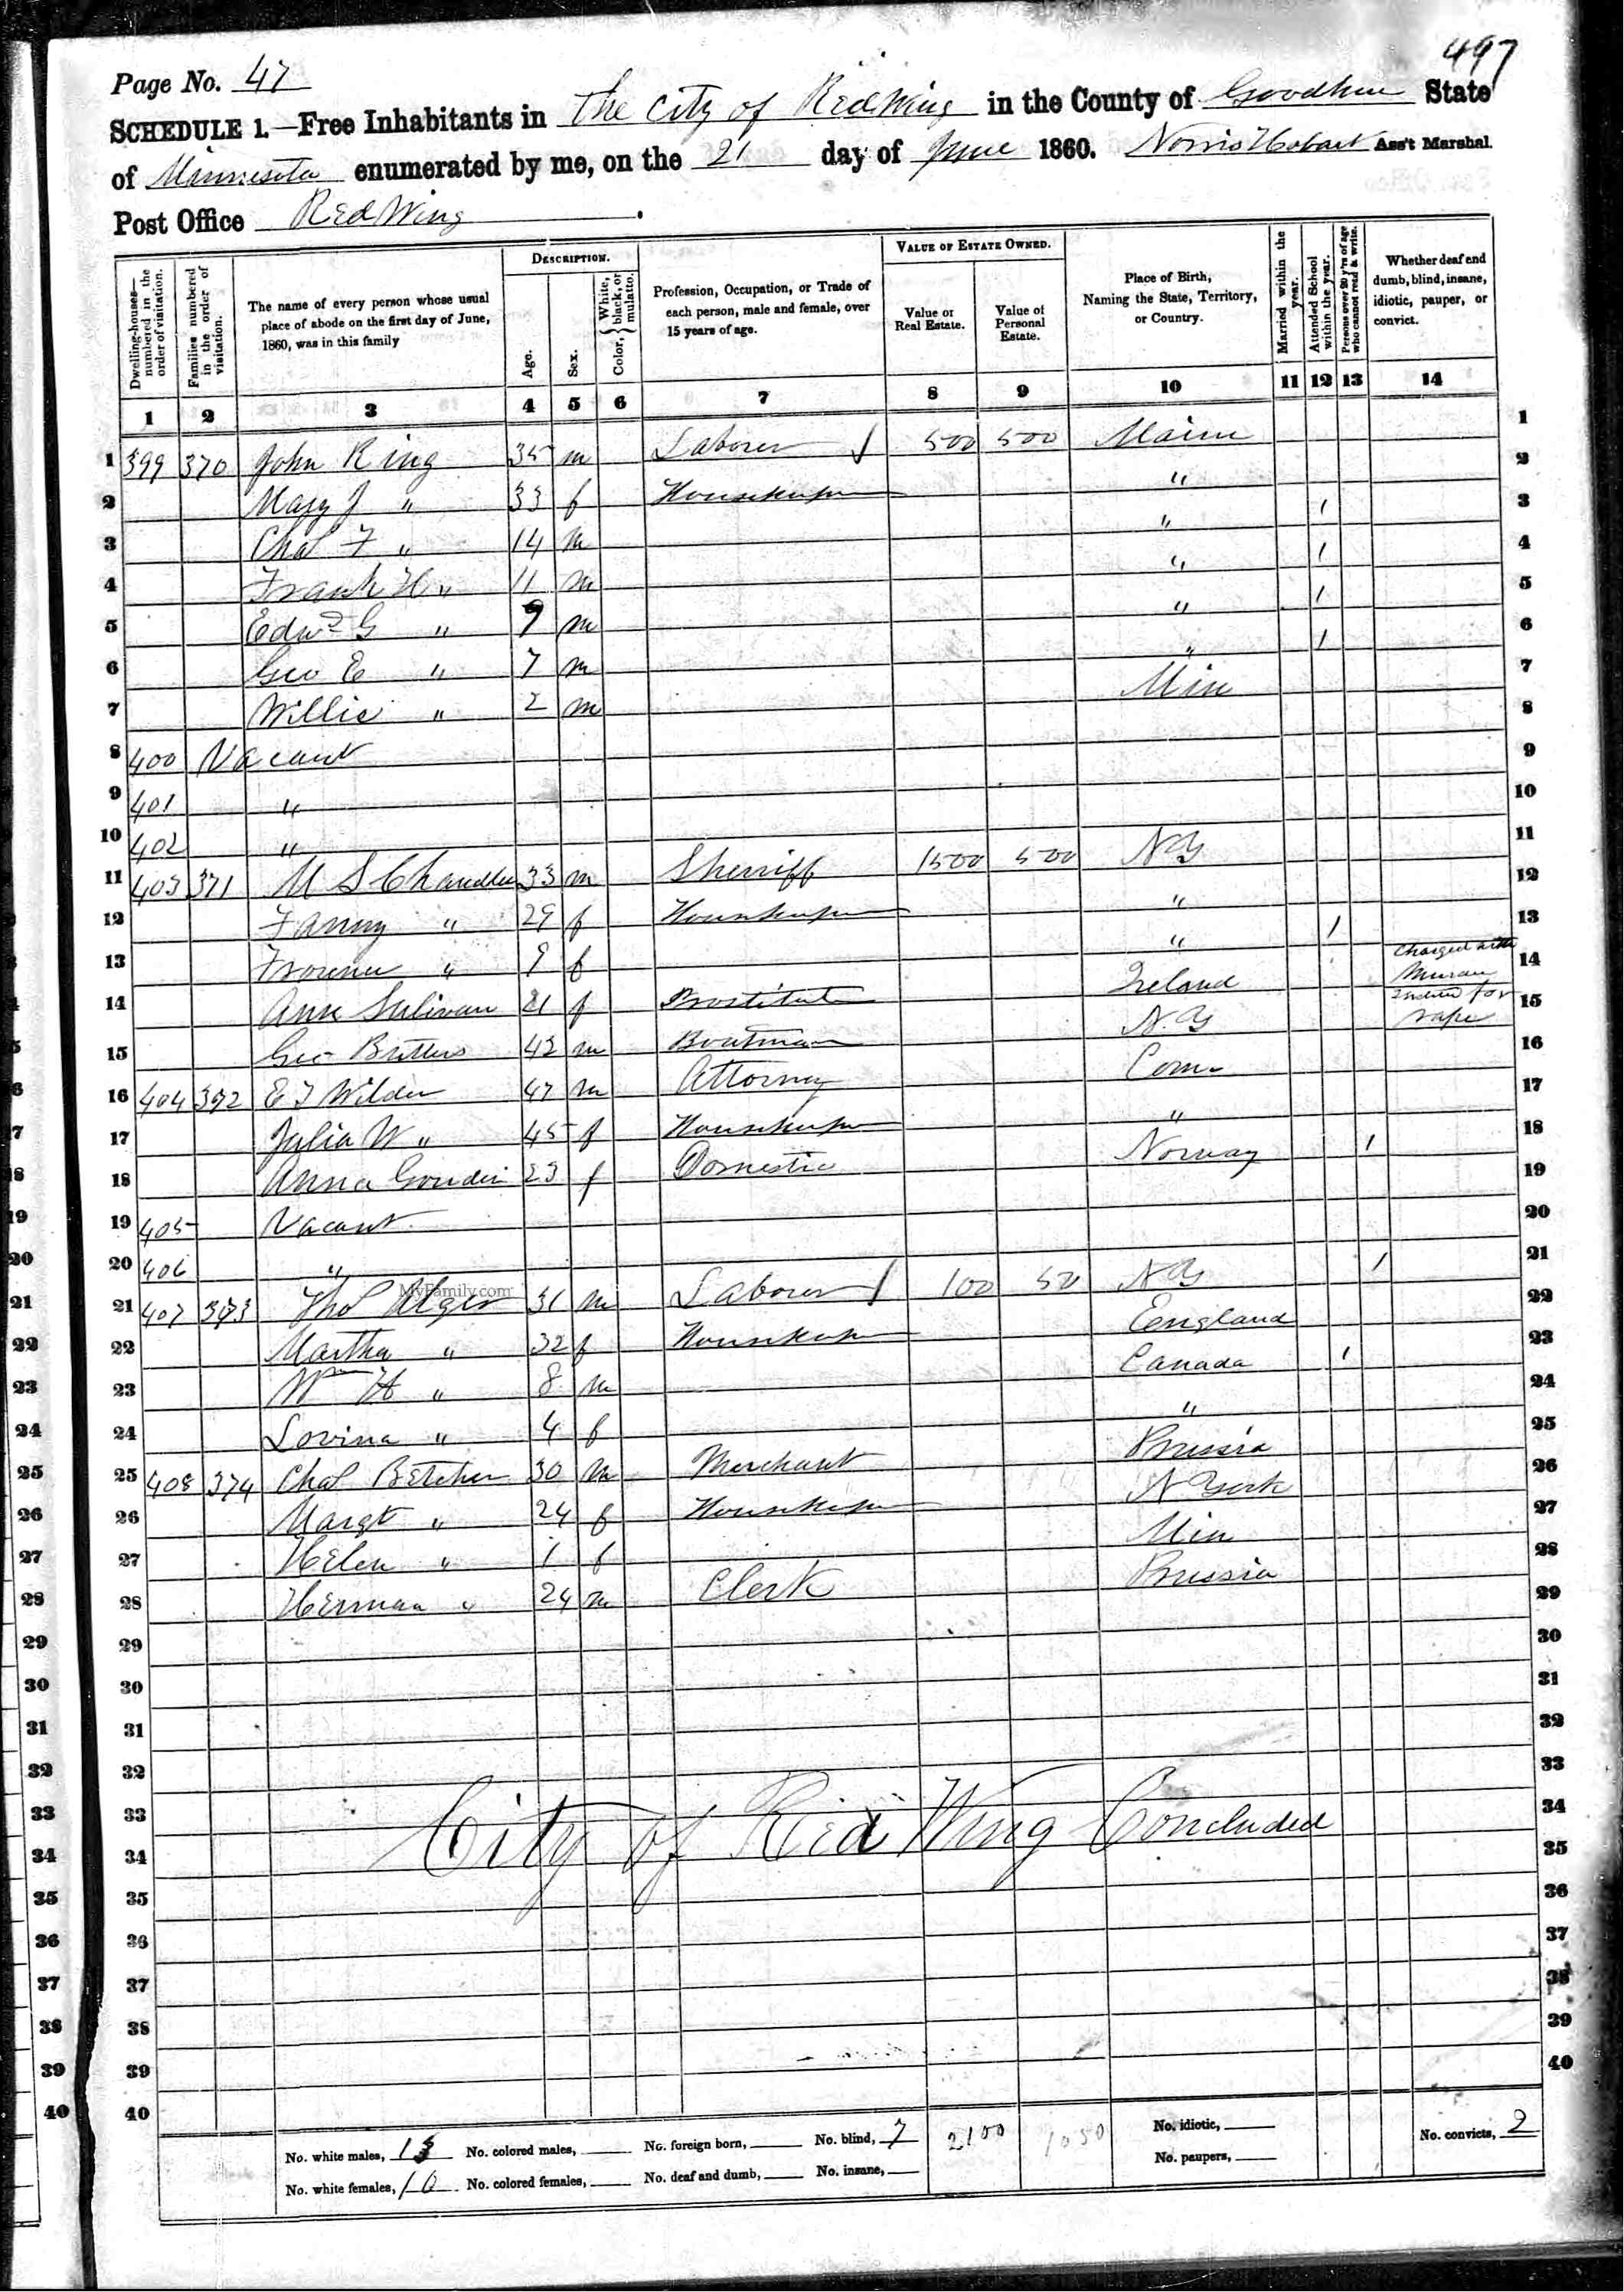 497
Page No. 47
SCHEDULE 1.—Free Inhabitants in The City of Red Wing in the County of Goodhue State
of Minnesota enumerated by me, on the 21 day of June 1860. Norris Hobart Ass't Marshal.
Post Office Red Wing
Dwelling-houses—numbered in the order of visitation.
Families numbered in the order of visitation.
The name of every person whose usual place of abode on the first day of June, 1860, was in this family
DESCRIPTION.
Age.
Sex.
Color, { White, black, or mulatto.
Profession, Occupation, or Trade of each person, male and female, over 15 years of age.
VALUE OF ESTATE OWNED.
Value of Real Estate.
Value of Personal Estate.
Place of Birth, Naming the State, Territory, or Country.
Married within the year.
Attended School within the year.
Persons over 20 y'rs of age who cannot read & write.
Whether deaf and dumb, blind, insane, idiotic, pauper, or convict.
1 2 3 4 5 6 7 8 9 10 11 12 13 14
1 399 370 John King 35 m Laborer 500 500 Maine 1
2 Mary J " 33 f Housekeeper " 2
3 Chas F " 14 m " 1 3
4 Frank H " 11 m " 1 4
5 Edwd G " 9 m " 1 5
6 Geo E " 7 m " 1 6
7 Willie " 2 m Min 7
8 400 Vacant 8
9 401 " 9
10 402 " 10
11 403 371 M S Chandler 33 m Sherriff 1500 500 N Y 11
12 Fanny " 29 f Housekeeper " 12
13 " 9 f " 1 13
14 Ann Sulivan 21 f Prostitute Ireland Charged with 14
15 Geo Butters 42 m Boatman N. Y for rape 15
16 404 372 E T Wilder 47 m Attorney Conn 16
17 Julia W " 45 f Housekeeper " 17
18 Anna 23 f Domestic Norway 1 18
19 405 Vacant 19
20 406 " 20
MyFamily.com
21 407 373 Thos Alger 31 m Laborer 100 50 N Y 1 21
22 Martha " 32 f Housekeeper England 22
23 Wm H " 8 m Canada 1 23
24 Lovina " 4 f " 24
25 408 374 Chas Betcher 30 m Merchant Prussia 25
26 Margt " 24 f Housekeeper N York 26
27 Helen " 1 f Min 27
28 Herman " 24 m Clerk Prussia 28
29 29
30 30
31 31
32 32
33 33
City of Red Wing Concluded
34 34
35 35
36 36
37 37
38 38
39 39
40 40
No. white males, 13 No. colored males, No. foreign born, No. blind, 7 2100 1050 No. idiotic, No. convicts, 2
No. white females, 10 No. colored females, No. deaf and dumb, No. insane, No. paupers,